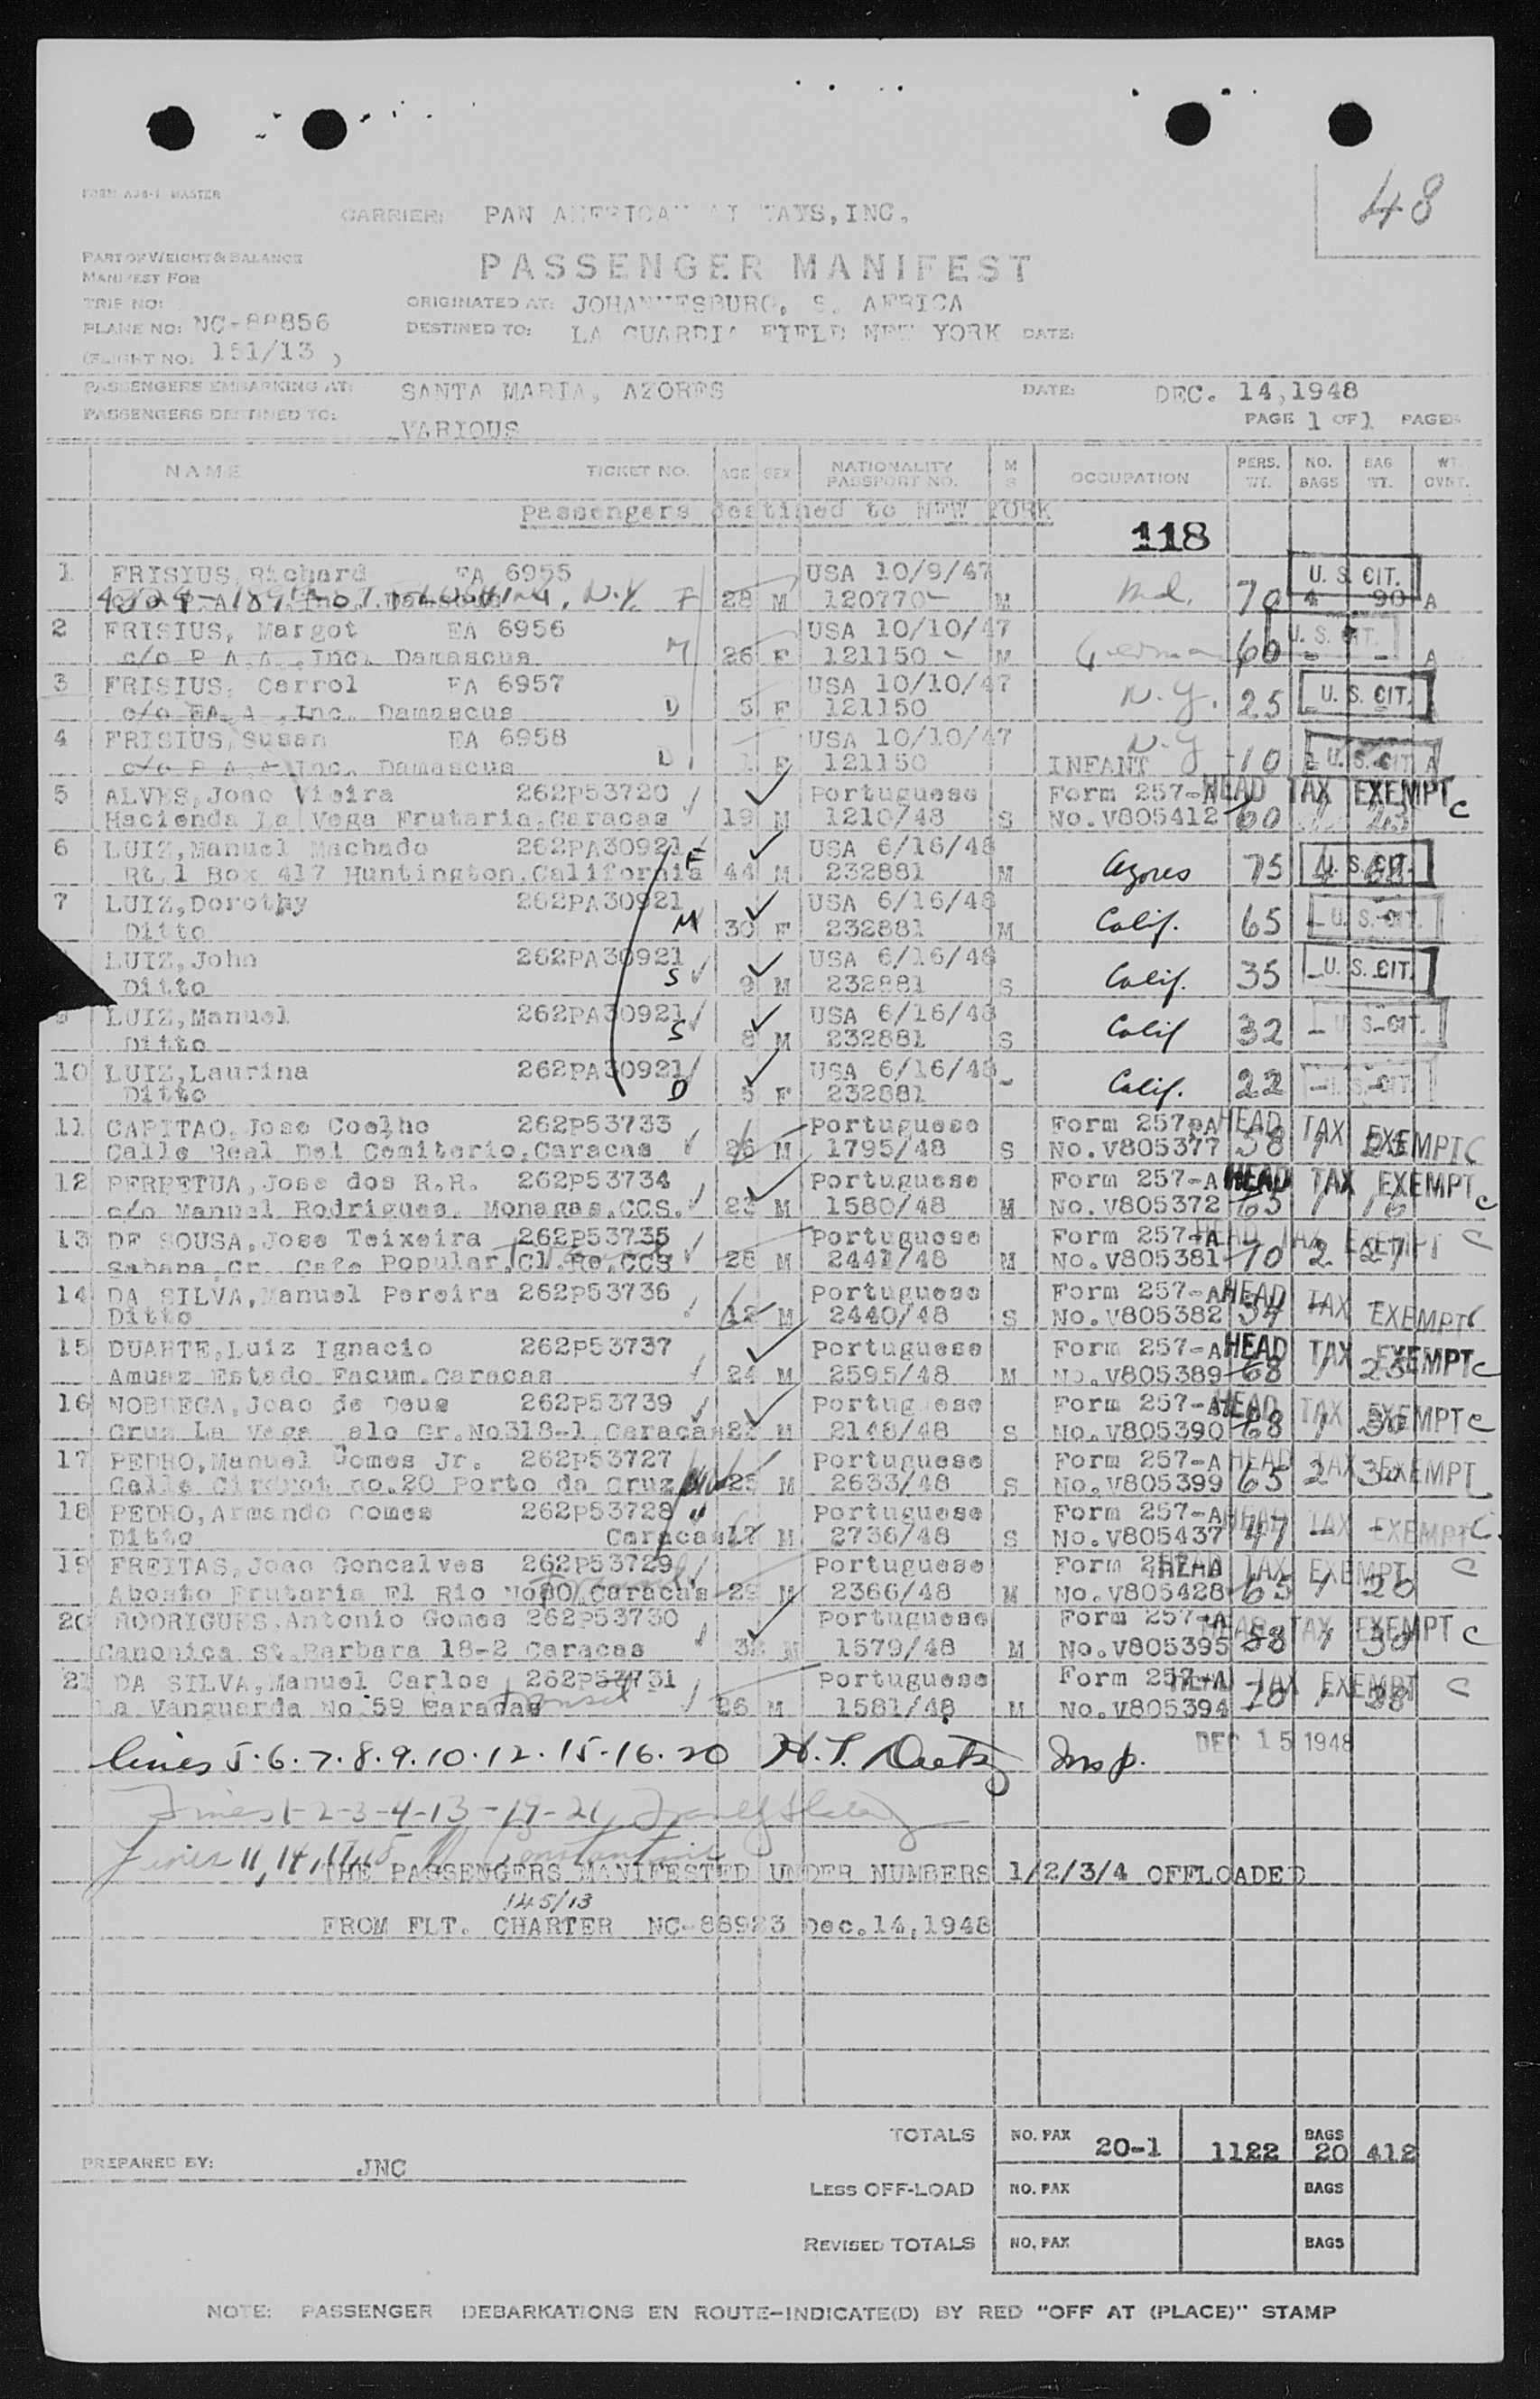 48
FORM ADS-1 MASTER
CARRIER: PAN AMERICAN AI WAYS, INC.
PART OF WEIGHT & BALANCE
MANIFEST FOR
PASSENGER MANIFEST
TRIP NO:
ORIGINATED AT: JOHANNESBURG, S. AFRICA
PLANE NO: NC-88856
DESTINED TO: LA GUARDIA FIELD NEW YORK DATE:
(FLIGHT NO: 151/13 )
PASSENGERS EMBARKING AT: SANTA MARIA, AZORES DATE: DEC. 14,1948
PASSENGERS DESTINED TO: VARIOUS PAGE 1 OF 1 PAGES
NAME TICKET NO. AGE SEX NATIONALITY PASSPORT NO. M S OCCUPATION PERS. WT. NO. BAGS BAG WT. WT. OVNT.
Passengers destined to NEW YORK
118
1 FRISIUS, Richard EA 6955 USA 10/9/47 U. S. CIT.
N.Y. F 28 M 120770 M Md. 70 4 90 A
2 FRISIUS, Margot EA 6956 USA 10/10/47 U. S. CIT.
c/o P.A.A., Inc. Damascus M 26 F 121150 M German 60 - - A
3 FRISIUS, Carrol EA 6957 USA 10/10/47
c/o P.A.A., Inc. Damascus D 5 F 121150 N.Y. 25 U. S. CIT.
4 FRISIUS, Susan EA 6958 USA 10/10/47 N.Y
c/o P.A.A. Inc. Damascus D 1 F 121150 INFANT 10 U. S. CIT A
5 ALVES, Joao Vieira 262P53720 Portuguese Form 257-A HEAD TAX EXEMPT
Hacienda La Vega Frutaria, Caracas 19 M 1210/48 S No.V805412 60 1 25 C
6 LUIZ, Manuel Machado 262PA30921 USA 6/16/48
Rt.1 Box 417 Huntington, California F 44 M 232881 M Azores 75 U. S. CIT.
7 LUIZ, Dorothy 262PA30921 USA 6/16/48
Ditto M 30 F 232881 M Calif. 65 U. S. CIT.
LUIZ, John 262PA30921 USA 6/16/48
Ditto S 9 M 232881 S Calif. 35 U. S. CIT.
9 LUIZ, Manuel 262PA30921 USA 6/16/48
Ditto S 8 M 232881 S Calif 32 U S CIT.
10 LUIZ, Laurina 262PA30921 USA 6/16/48
Ditto D 5 F 232881 - Calif. 22 U. S. CIT
11 CAPITAO, Jose Coelho 262P53733 Portuguese Form 257-A HEAD TAX EXEMPT
Calle Real Del Cemiterio, Caracas 26 M 1795/48 S No.V805377 58 1 25 C
12 PERPETUA, Jose dos R.R. 262P53734 Portuguese Form 257-A HEAD TAX EXEMPT
c/o Manuel Rodrigues. Monagas.CCS. 23 M 1580/48 M No.V805372 65 1 16 C
13 DE SOUSA, Jose Teixeira 262P53735 Portuguese Form 257-A HEAD TAX EXEMPT C
Sabana Gr. Cafe Popular, Cl. Re.CCS 28 M 2441/48 M No.V805381 70 2 27
14 DA SILVA, Manuel Pereira 262P53736 Portuguese Form 257-A HEAD TAX EXEMPT
Ditto 12 M 2440/48 S No.V805382 34 - - C
15 DUARTE, Luiz Ignacio 262P53737 Portuguese Form 257-A HEAD TAX EXEMPT
Amuaz Estado Facum. Caracas 24 M 2595/48 M No.V805389 68 1 25 C
16 NOBREGA, Joao de Deus 262P53739 Portuguese Form 257-A HEAD TAX EXEMPT
Cruz La Vega alo Gr.No318-1 Caracas 22 M 2148/48 S No.V805390 68 1 30 C
17 PEDRO, Manuel Gomes Jr. 262P53727 Portuguese Form 257-A HEAD TAX EXEMPT
Calle Cirdrot no.20 Porto da Cruz 25 M 2633/48 S No.V805399 65 2 30 C
18 PEDRO, Armando Gomes 262P53728 Portuguese Form 257-A HEAD TAX EXEMPT
Ditto Caracas 17 M 2736/48 S No.V805437 47 - - C
19 FREITAS, Joao Goncalves 262P53729 Portuguese Form 257-A HEAD TAX EXEMPT C
Abosto Frutaria El Rio No80 Caracas 29 M 2366/48 M No.V805428 65 1 20
20 RODRIGUES, Antonio Gomes 262P53730 Portuguese Form 257-A HEAD TAX EXEMPT
Canonica St. Barbara 18-2 Caracas 32 M 1579/48 M No.V805395 58 1 30 C
21 DA SILVA, Manuel Carlos 262P53731 Portuguese Form 257-A HEAD TAX EXEMPT C
La Vanguarda No.59 Caracas 26 M 1581/48 M No.V805394 70 1 38
lines 5.6.7.8.9.10.12.15.16.20 H. T. Insp. DEC 15 1948
Lines 1-2-3-4-13-19-21
Lines 11, 14, 17, 18 Constantine
THE PASSENGERS MANIFESTED UNDER NUMBERS 1/2/3/4 OFFLOADED
145/13
FROM FLT. CHARTER NC-88923 Dec.14,1948
TOTALS NO. PAX 20-1 1122 BAGS 20 412
PREPARED BY: JNC
LESS OFF-LOAD NO. PAX BAGS
REVISED TOTALS NO. PAX BAGS
NOTE: PASSENGER DEBARKATIONS EN ROUTE-INDICATE(D) BY RED "OFF AT (PLACE)" STAMP